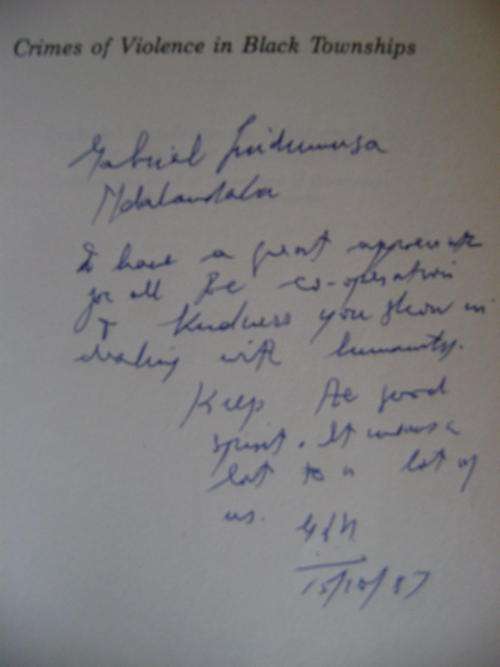 Crimes of Violence in Black Townships
Gabriel
Ndalandala
I have a great appreciation
for all the co-operation
& kindness you show in
dealing with humanity.
Keep the good
spirit. It means a
lot to a lot of
us.
15/10/87